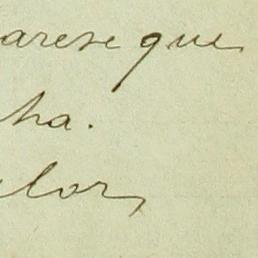 arese que
ha.
lor,